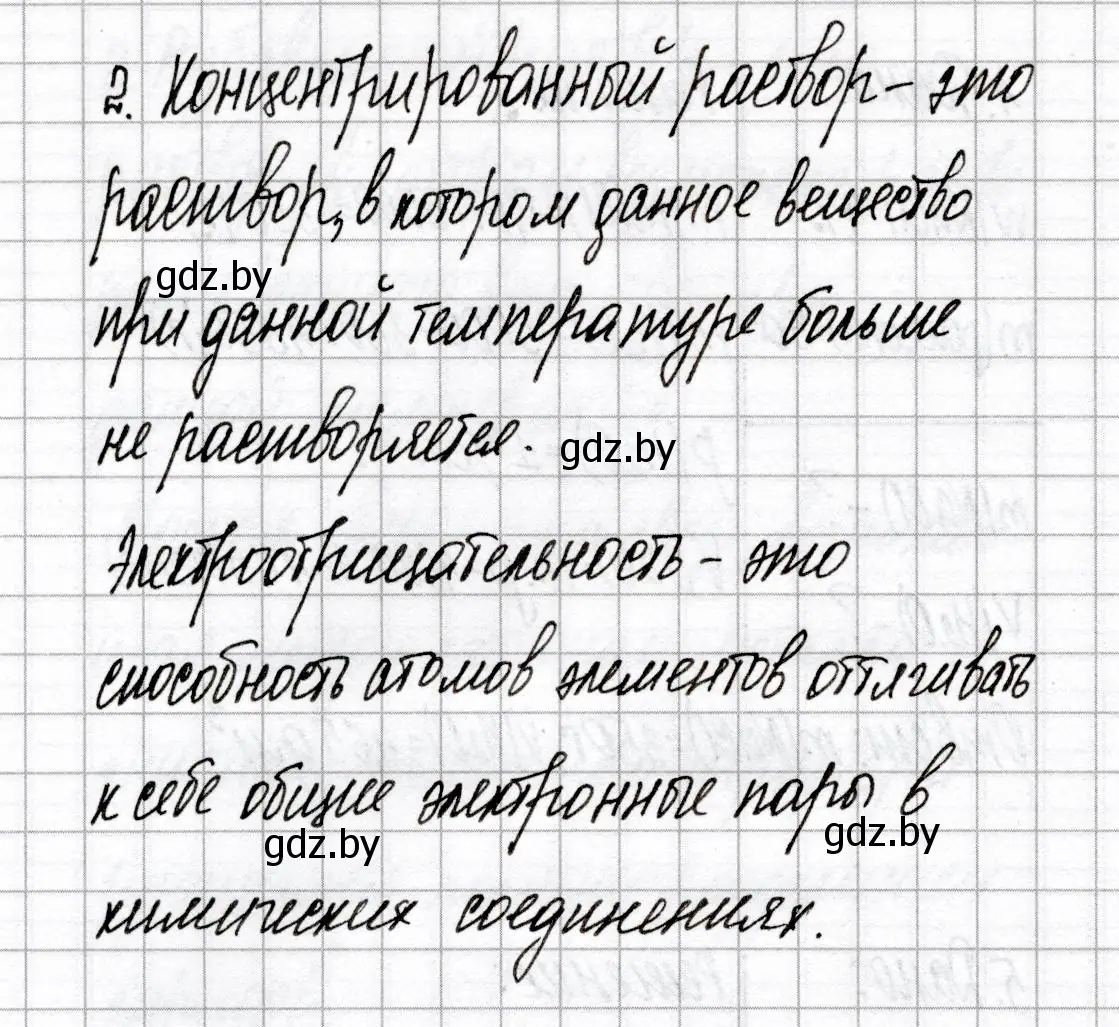 2. Концентрированный раствор – это
раствор, в котором данное вещество
gdz.by
при данной температуре больше
не растворяется.
gdz.by
Электроотрицательность – это
способность атомов элементов оттягивать
к себе общие электронные пары в
gdz.by
gdz.by
химических соединениях.